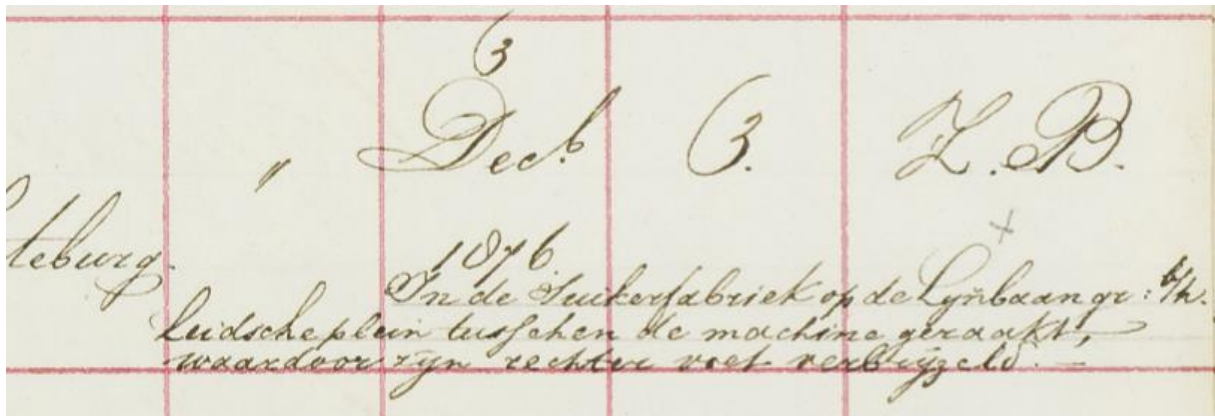 3
" Decb. 3. Z.B.
teburg. 1876.
In de Suikerfabriek op de Lynbaangr: b/h.
Leidscheplein tusschen de machine geraakt,
waardoor zyn rechter voet verbryzeld. —